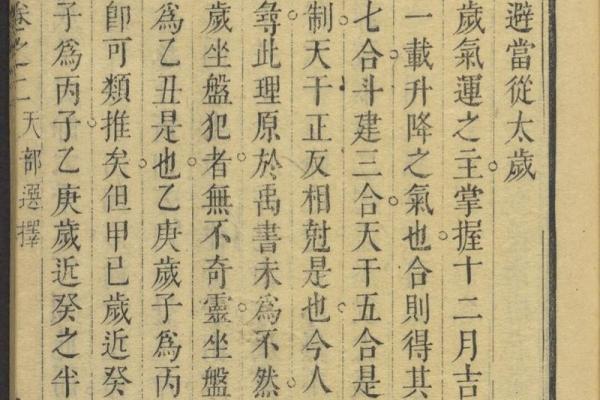 避當從太歲
歲氣運之主掌握十二月吉
一載升降之氣也合則得其
七合斗建三合天干五合是
制天干正反相尅是也今人
尋此理原於禹書未為不然
歲坐盤犯者無不奇靈坐盤
為乙丑是也乙庚歲子為丙
即可類推矣但甲巳歲近癸
子為丙子乙庚歲近癸之半
卷之二 天部選擇